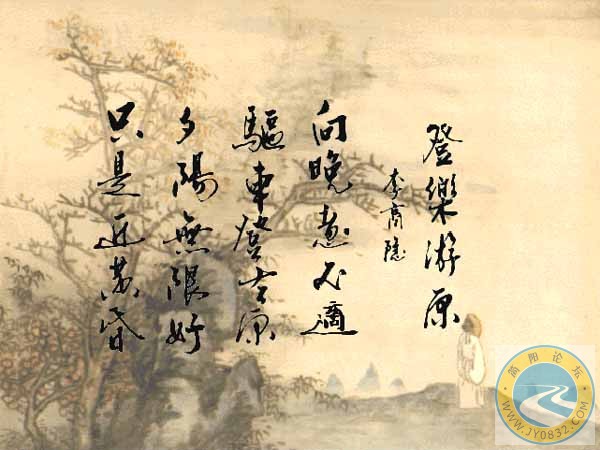 登樂游原
李商隱
向晚意不適
驅車登古原
夕陽無限好
只是近黃昏
简阳论坛
WWW.JY0832.COM